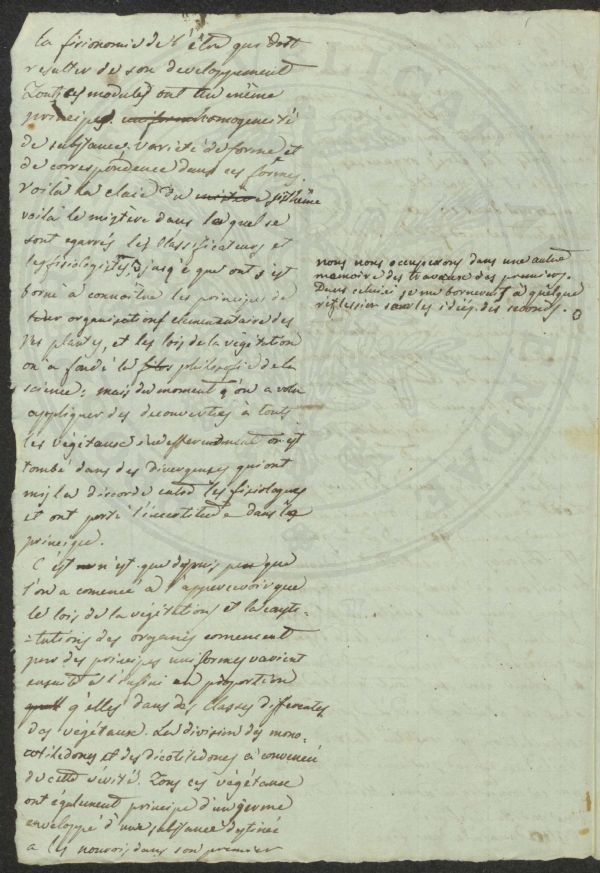 la fisionomie de l'être qui doit
resulter de son developpement
Tout ces modules ont un même
principes. uniforme omogeneité
de substance. Varieté de forme et
de correspondence dans ces formes.
Voilà la claie du sistheme
voilà le mistere dans lequel se
sont egarrés les classificateurs et
les fisiologistes, jusqu'a que ont s'est
borné à connaitre les principes de
organisations elementaire des
plantes, et les lois de la végétation
on a fondé la philosofie de la
science; mais du moment q'on a volu
appliquer des decouvertes à touts
les végétaux indifferentment on est
tombé dans des divergenses qui ont
mis la discorde entre les fisiologues
et ont porté l'incertitude dans les
principe.
C'est n'est que depuis peu que
l'on a comencé à l'appercevoir que
le lois de la végétations et la consti-
-tutions des organes comencent
par des principes uniformes varient
ensuite à l'infini en proportion
q'elles dans des classes differentes
des végétaux. La division des mono-
cotiledones et des dicotiledones a convencu
de cette vérité. Tous ces végétaux
ont également principe d'un germe
enveloppé d'une substance destinée
a les nourir dans son premier
nous nous occuperons dans une autre
memoire des travaux des premiers.
Dans celuici je me bornerai à quelque
reflession sur les idées des seconds.